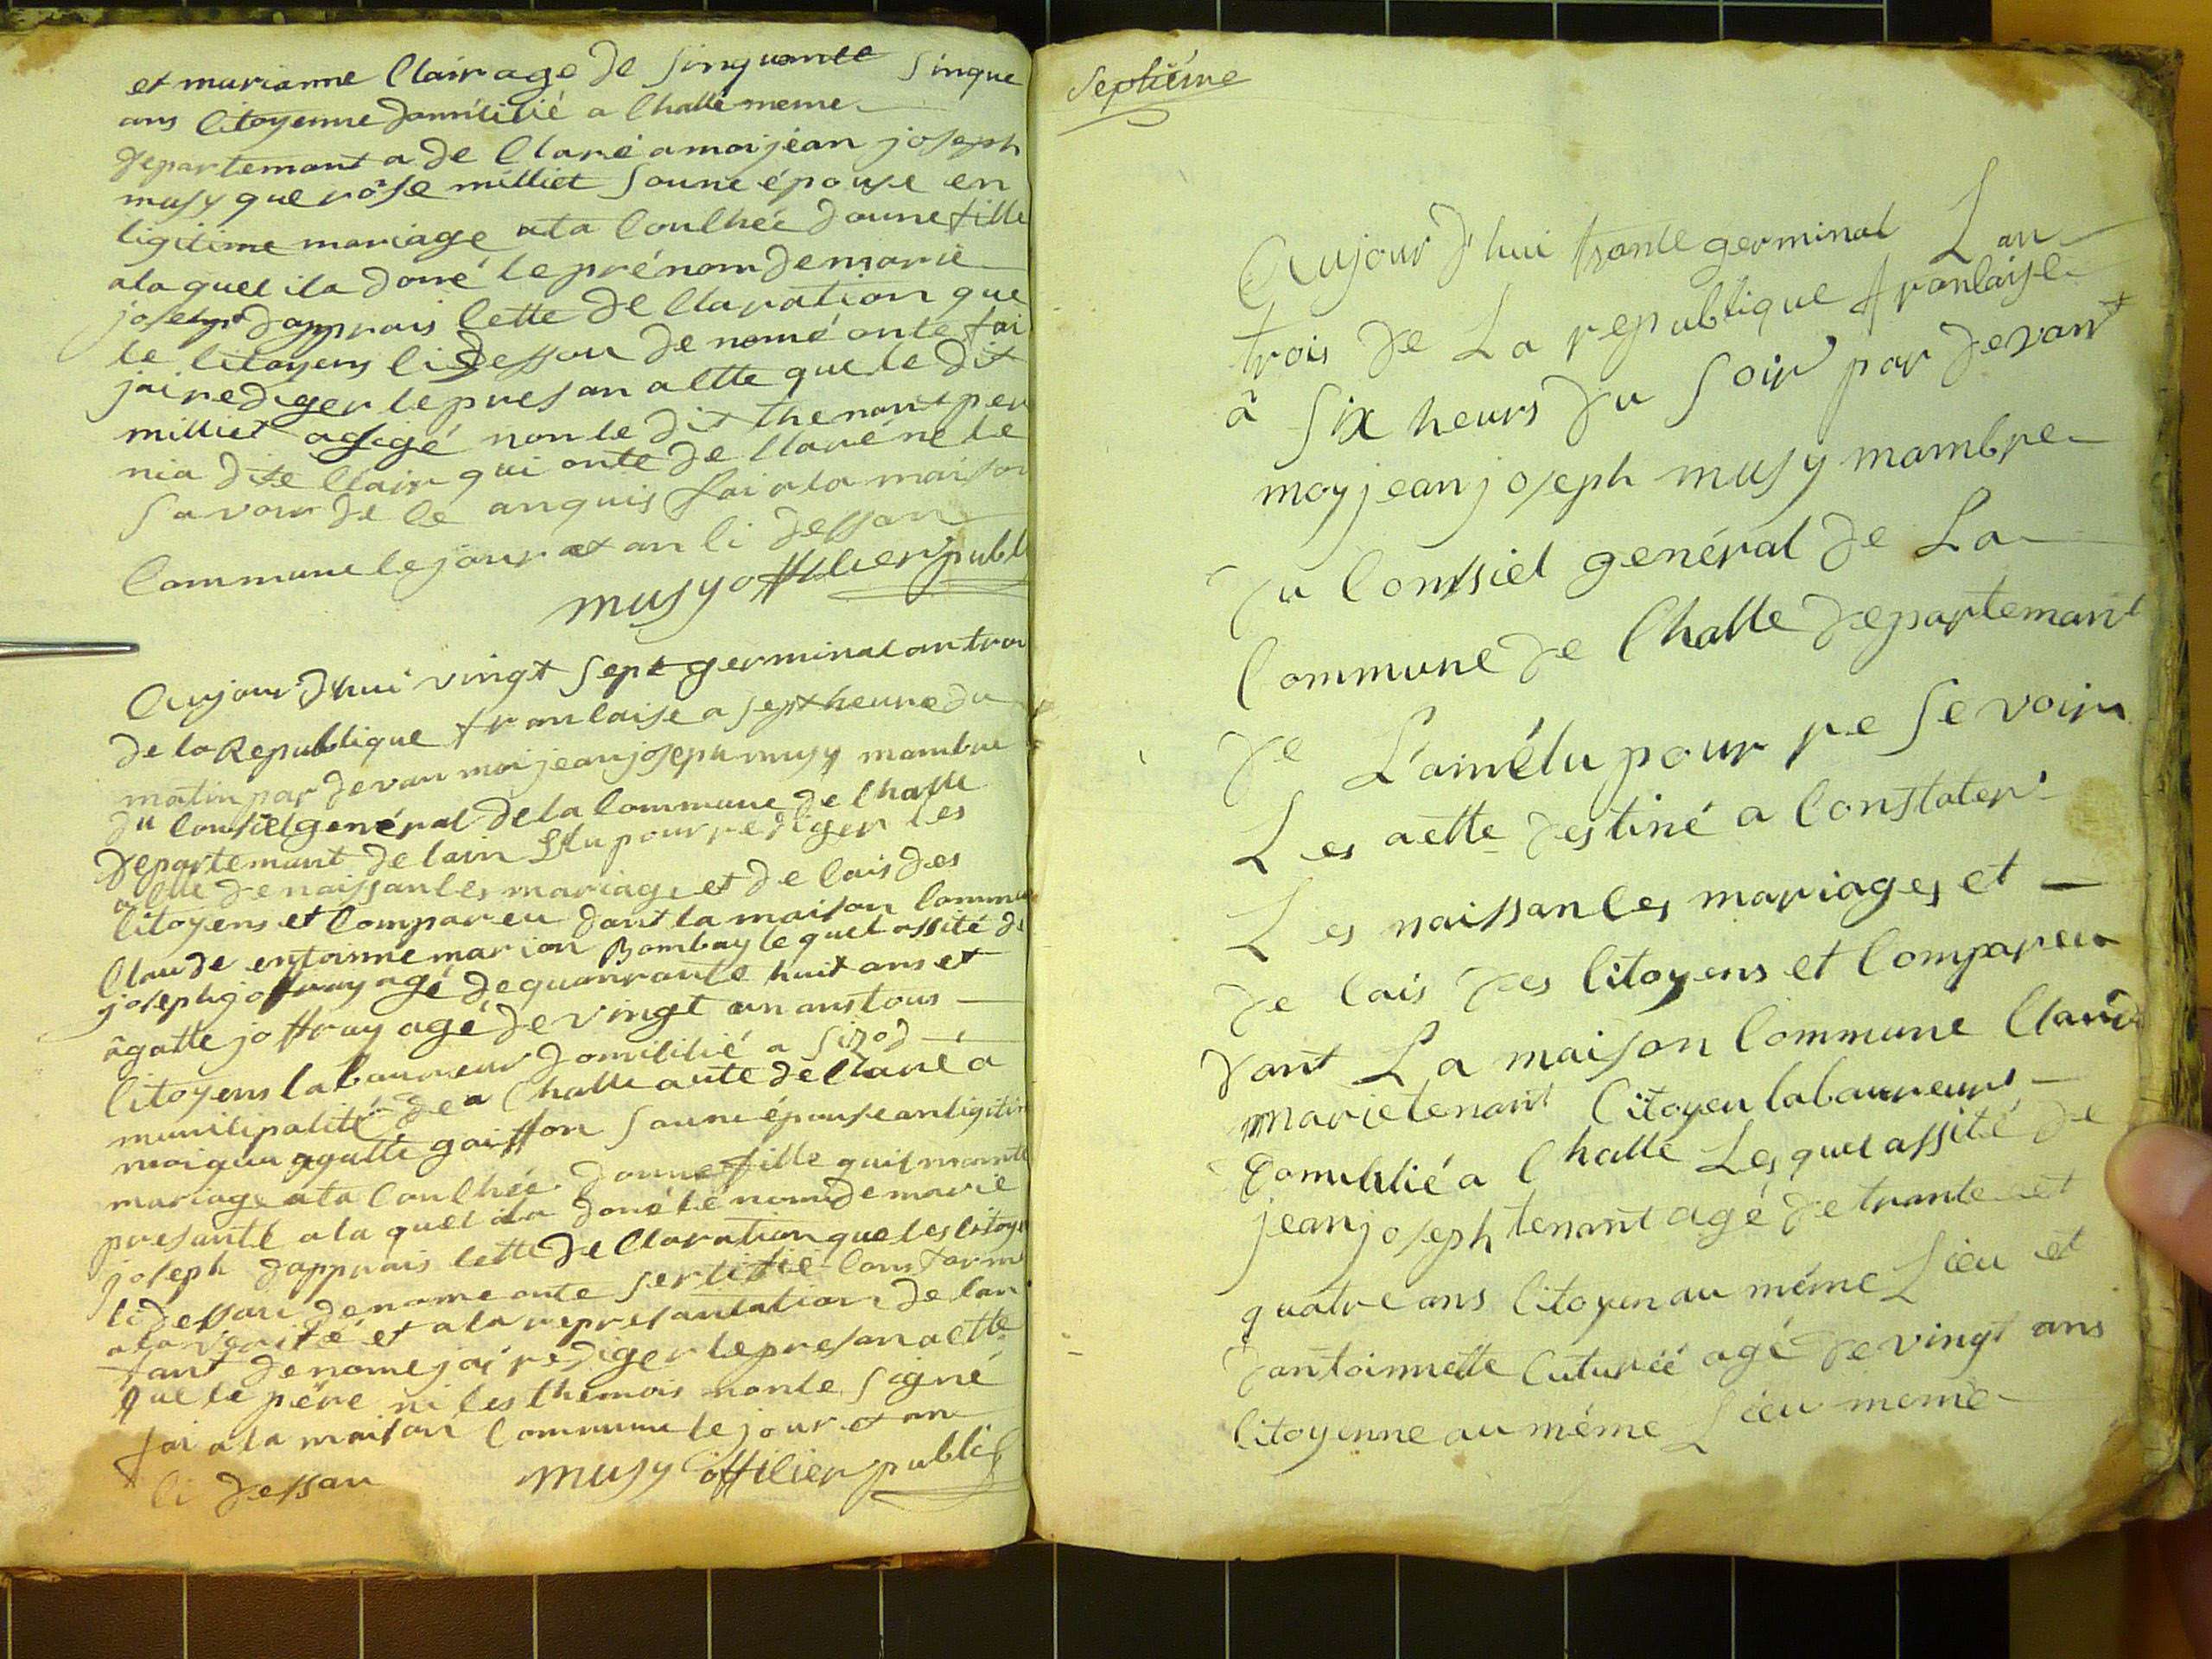 et marianne Clair age de sinquante sinque
ans Citoyenne domicilié a Challe meme
departemant a de Claré a moi jean joseph
musy que rose milliet soune épouse en
ligitime mariage ata Couchée doune fille
ala quel ila doné le prénom de marie
joseph dapprais Cette de Claration que
le Citoyens Ci dessou de nomé onte fai
jai rediger le presan actte que le dit
milliet
nia dite Clair qui onte de Claré ne le
savoir de Ce anquis fai a la maison
Commune le jour et an Ci dessan
musy officier publ
Aujour dhui vingt sept germinal an troi
de la Republique francaise a sept heure du
matin par devan moi jean joseph musy mambre
du Consiel genéral de la Commune de Challe
departemant de lain Elu pour rediger les
actte de naissances mariage et de Cais des
Citoyens et Compareu dant la maison Commu
Claude entoinne marion Bombay le quel assité de
joseph joffray agé de quanrante huit ans et
âgatte joffray agé de vingt un ans tous
Citoyens laboureur domicilié a Sizod
municipalité de a Challe a ute de Claré a
moi que agatte goiffon soune épouse an ligitim
mariage ata Couchée doune fille quil mante
presante ala quel ila doné le nom de marie
joseph dapprais Cette de Claration que les Citoye
Ci dessou de nome onte sertifié Conform
a la vérité et a la represantation de lan
fant de nome jai rediger le presan actte
que le père ni les themois nonte signé
fai a la maison Commune le jour et an
Ci dessau musy officier public
Septiéme
Aujour d'hui trante germinal Lan
trois de La republique francaise
à Six heurs du soir par devant
moy jean joseph musy mambre
du Consiel genéral de La
Commune de Challe departemant
de L'ain élu pour re Sevoir
Les actte destiné a Constater
Les naissances mariages et
de Cais des Citoyens et Compareu
dant La maison Commune Claud
marie tenant Citoyen laboureurs
domicilié a Challe Les quel assité de
jean joseph tenant agé de trante et
quatre ans Citoyen au même Lieu et
dantoinnette Cuturié agé de vingt ans
Citoyenne au même Lieu meme